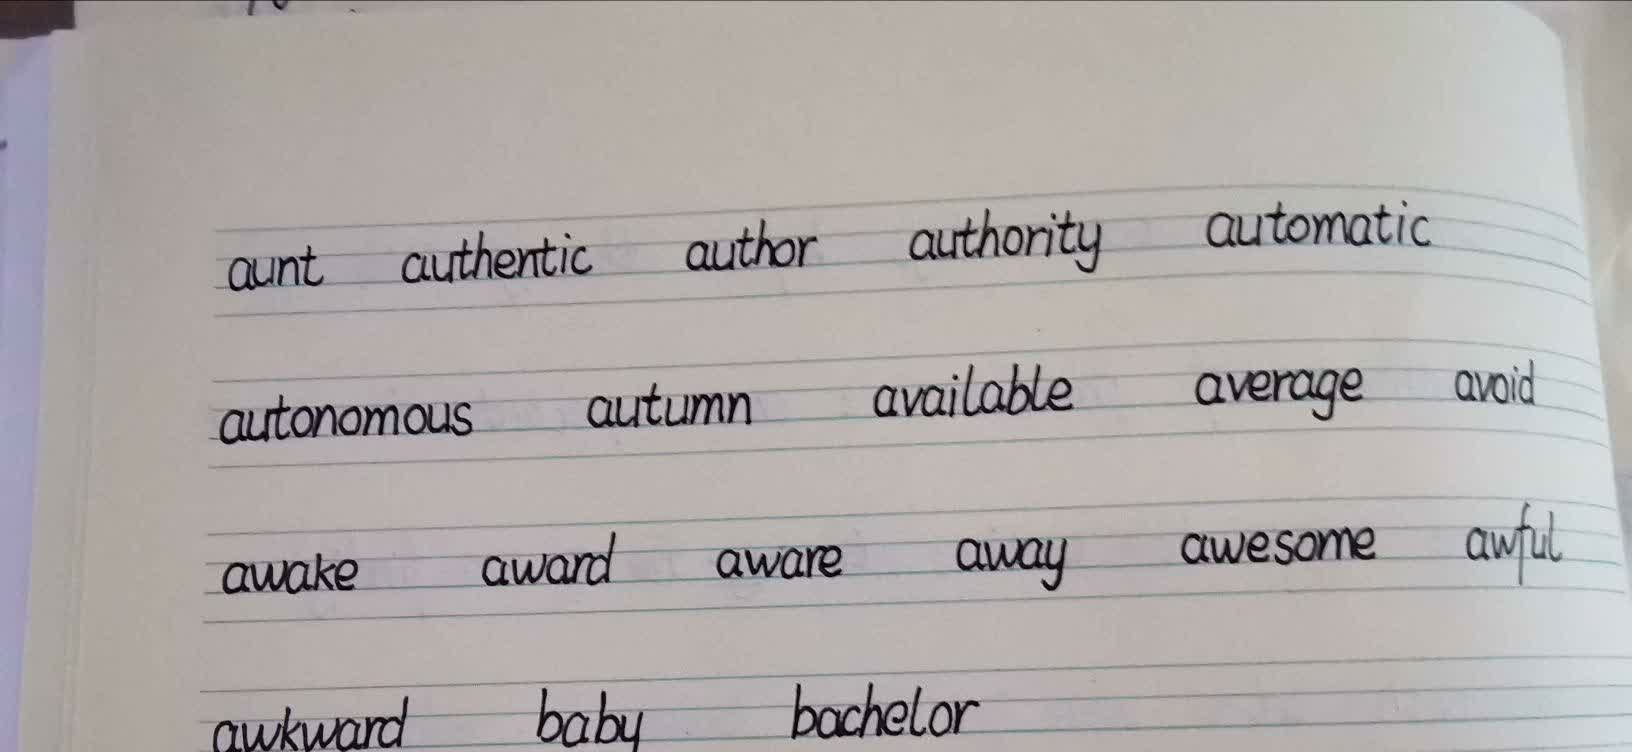 aunt authentic author authority automatic
autonomous autumn available average avoid
awake award aware away awesome awful
awkward baby bachelor